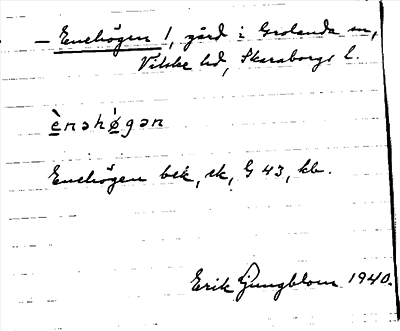 — Enehögen 1, gård i Grolanda sn,
Vilske hd, Skaraborgs l.
ènəhø̀gən
Enehögen bek, ek, G 43, kb.
Erik Ljungblom 1940.